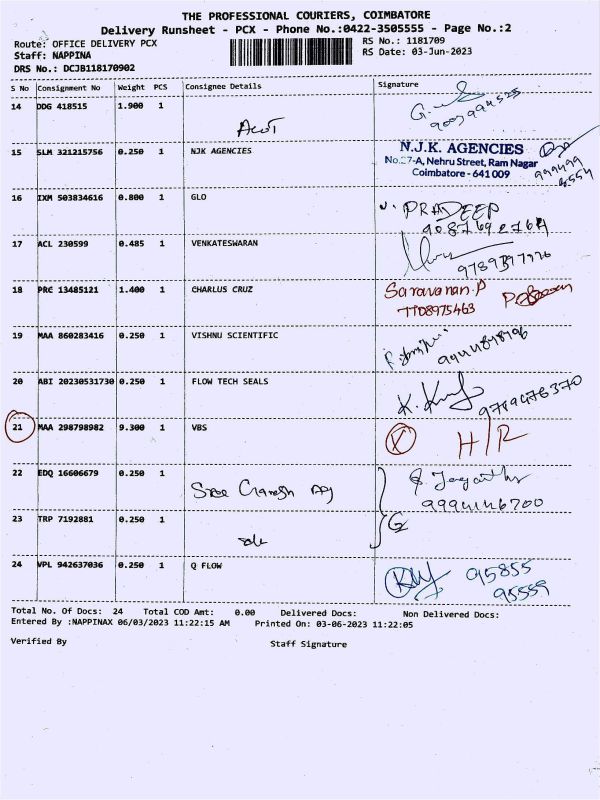 THE PROFESSIONAL COURIERS, COIMBATORE
Delivery Runsheet - PCX - Phone No.:0422-3505555 - Page No.:2
Route: OFFICE DELIVERY PCX
RS No.: 1181709
Staff: NAPPINA
RS Date: 03-Jun-2023
DRS No.: DCJB118170902
S No Consignment No Weight PCS Consignee Details Signature
14 DDG 418515 1.900 1
15 SLM 321215756 0.250 1 NJK AGENCIES
N.J.K. AGENCIES
No.27-A, Nehru Street, Ram Nagar
Coimbatore - 641 009
16 IXM 503834616 0.800 1 GLO
PRADEEP
9087692764
17 ACL 230599 0.485 1 VENKATESWARAN
18 PRC 13485121 1.400 1 CHARLUS CRUZ
Saravanan.P
7708975463
19 MAA 860283416 0.250 1 VISHNU SCIENTIFIC
20 ABI 20230531730 0.250 1 FLOW TECH SEALS
9789476370
21 MAA 298798982 9.300 1 VBS
H/R
22 EDQ 16606679 0.250 1
Sree Ganesh
23 TRP 7192881 0.250 1
24 VPL 942637036 0.250 1 Q FLOW
95855
95559
Total No. Of Docs: 24 Total COD Amt: 0.00 Delivered Docs: Non Delivered Docs:
Entered By :NAPPINAX 06/03/2023 11:22:15 AM Printed On: 03-06-2023 11:22:05
Verified By Staff Signature